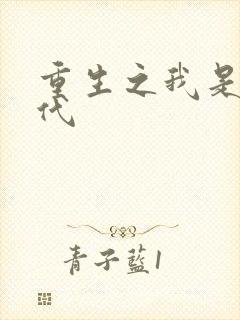 重生之我是
代
青子蓝1